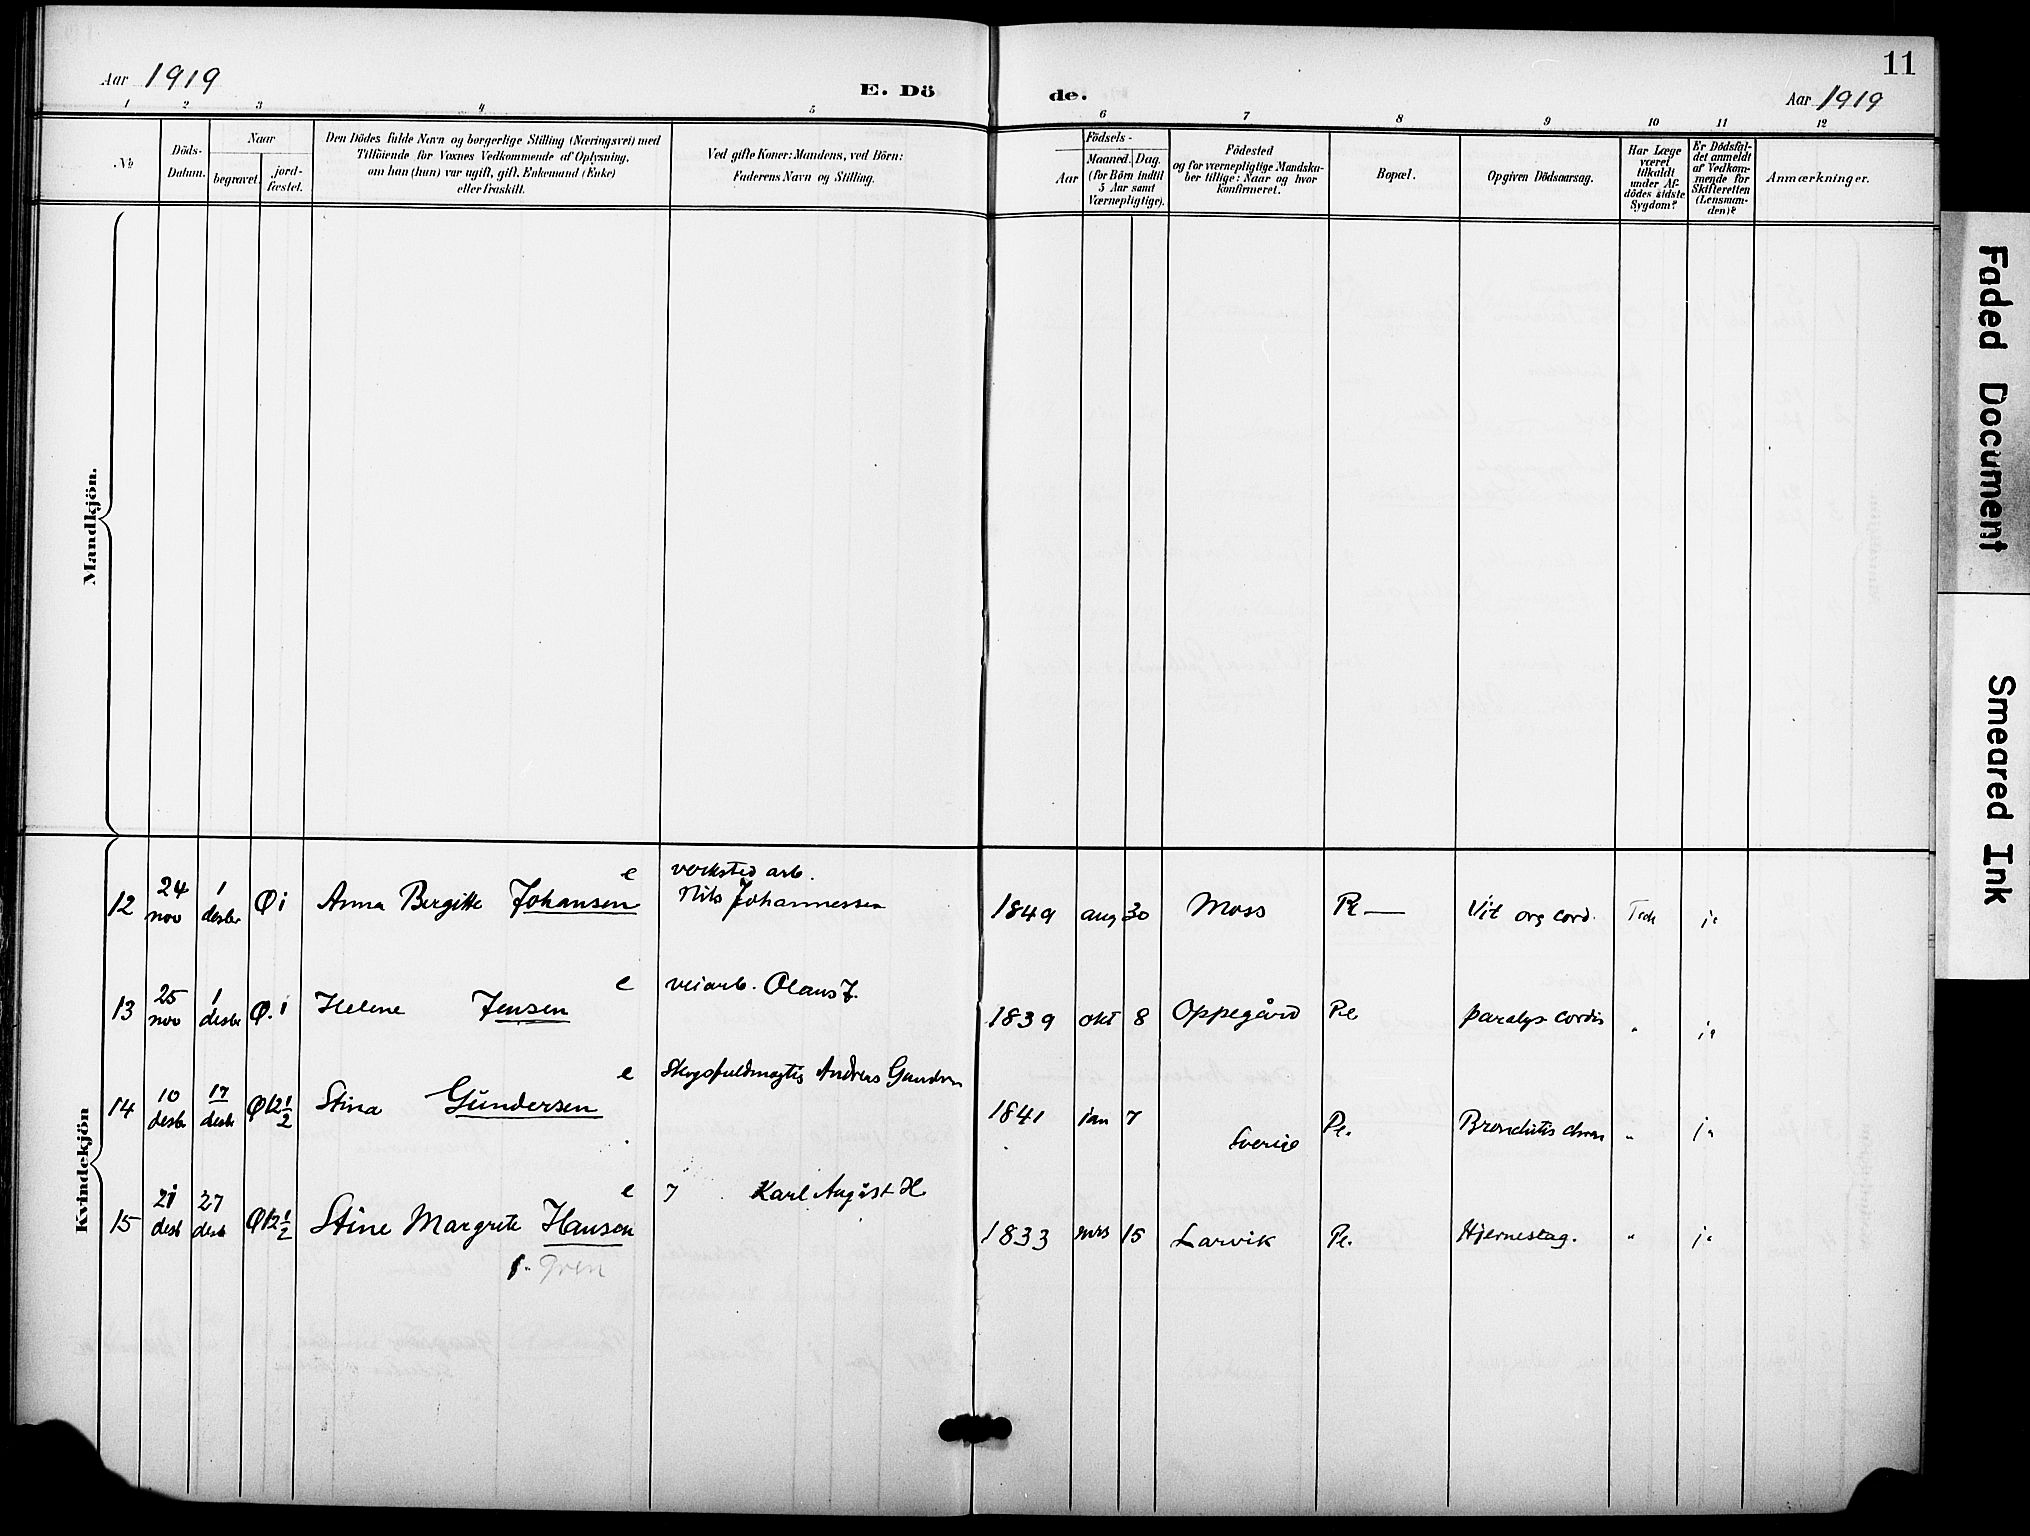 Aar 1919
E. Dö
de.
11
Aar 1919
1 2 3 4 5 6 7 8 9 10 11 12
№
Döds-
Datum.
Naar
begravet.
jord-
fæstet.
Den Dödes fulde Navn og borgerlige Stilling (Næringsvei) med
Tilföiende for Voxnes Vedkommende af Oplysning,
om han (hun) var ugift, gift, Enkemand (Enke)
eller fraskilt.
Ved gifte Koner: Mandens, ved Börn:
Faderens Navn og Stilling.
Födsels-
Aar
Maaned. Dag.
(for Börn indtil
5 Aar samt
Værnepligtige).
Födested
og for værnepligtige Mandska-
ber tillige: Naar og hvor
konfirmeret.
Bopæl.
Opgiven Dödsaarsag.
Har Læge
været
tilkaldt
under Af-
dödes sidste
Sygdom?
Er Dödsfal-
det anmeldt
af Vedkom-
mende for
Skifteretten
(Lensman-
den)?
Anmærkninger.
Mandkjön.
Kvindekjön
e verksted arb.
12 24 nov 1 desbr Ø i Anna Bergitte Johansen Nils Johannessen 1849 aug 30 Moss Vit org cord. ja
e veiarb. Olaus J.
13 25 nov 1 desbr Ø. i Helene Jensen 1839 okt 8 Oppegård paralys cordis " ja
e Skogsfuldmægtig Andreas Gundersn
14 10 desbr 17 desbr Ø 12½ Stina Gundersen 1841 jan 7 Sverige Bronchitis chron " ja
e Karl August H.
15 21 desb 27 desb Ø 12½ Stine Margrete Hansen 1833 mrs 15 Larvik Hjerneslag. " ja
f. Gren
Faded Document
Smeared Ink